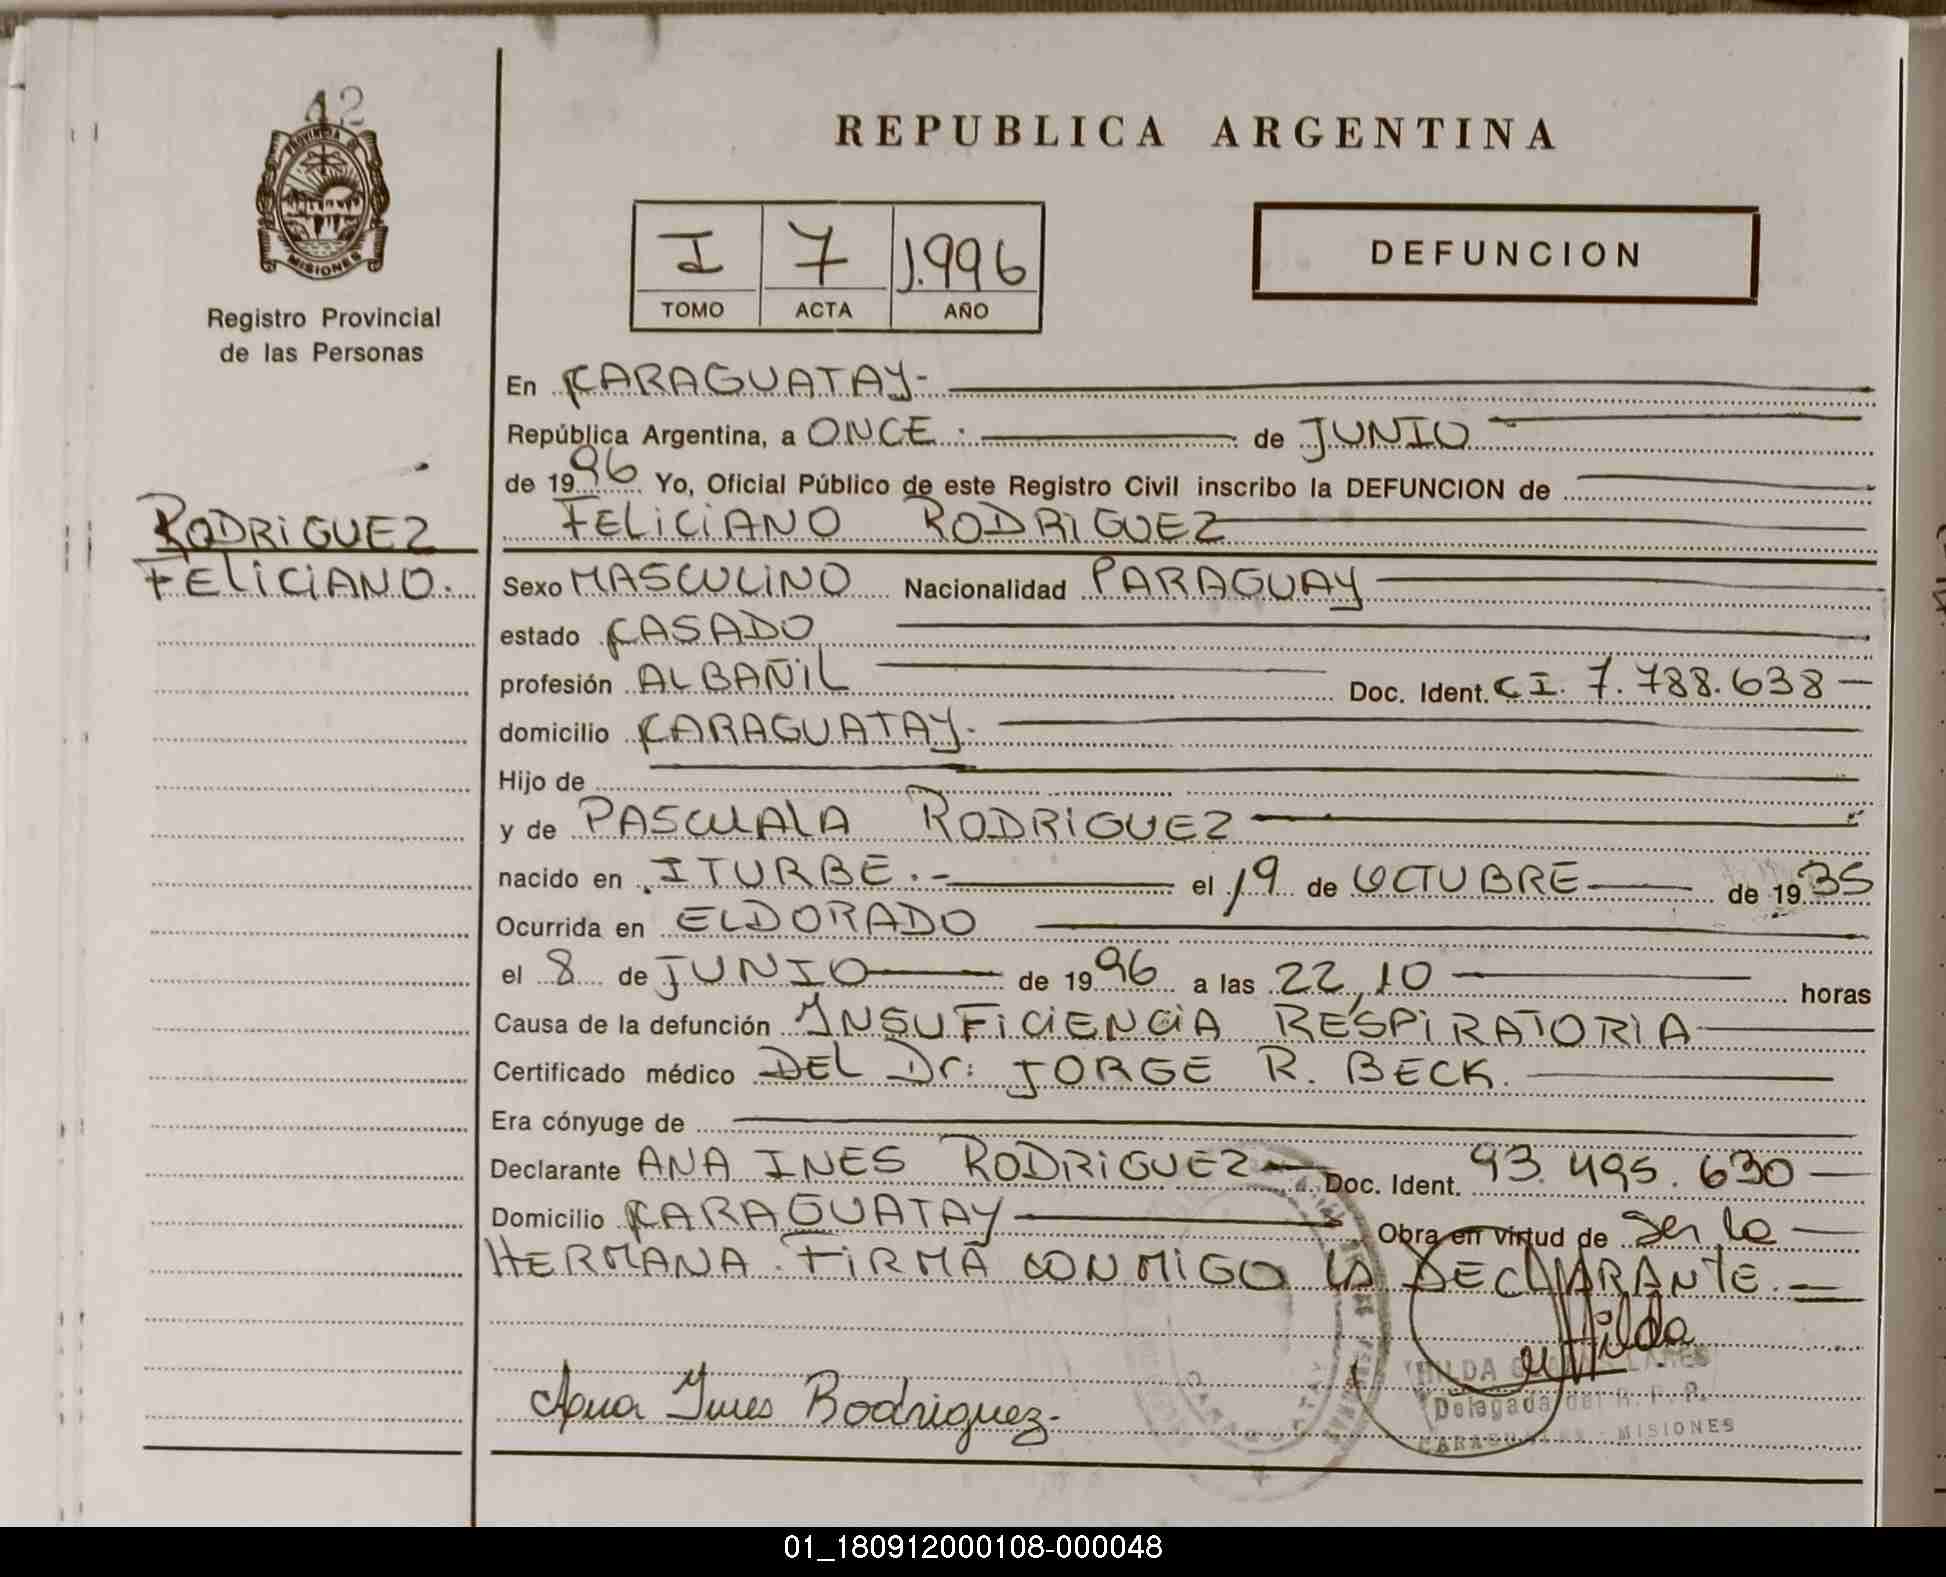 42
PROVINCIA DE
MISIONES
Registro Provincial
de las Personas
REPUBLICA ARGENTINA
I 7 1.996
TOMO ACTA AÑO
DEFUNCION
En CARAGUATAY.-
República Argentina, a ONCE.- de JUNIO
de 1996 Yo, Oficial Público de este Registro Civil inscribo la DEFUNCION de
FELICIANO RODRIGUEZ
RODRIGUEZ
FELICIANO.
Sexo MASCULINO Nacionalidad PARAGUAY
estado CASADO
profesión ALBAÑIL Doc. Ident. C.I. 7.788.638
domicilio CARAGUATAY.
Hijo de
y de PASCUALA RODRIGUEZ
nacido en ITURBE.- el 19 de OCTUBRE de 1935
Ocurrida en ELDORADO
el 8 de JUNIO de 1996 a las 22,10 horas
Causa de la defunción INSUFICIENCIA RESPIRATORIA
Certificado médico DEL Dr: JORGE R. BECK.
Era cónyuge de
Declarante ANA INES RODRIGUEZ Doc. Ident. 93.495.630
Domicilio CARAGUATAY Obra en virtud de ser la
HERMANA. FIRMA CONMIGO LA DECLARANTE.=
Hilda
HILDA
Ana Ines Rodriguez.
Delegada del R.P.P.
CARAGUATAY - MISIONES
01_180912000108-000048